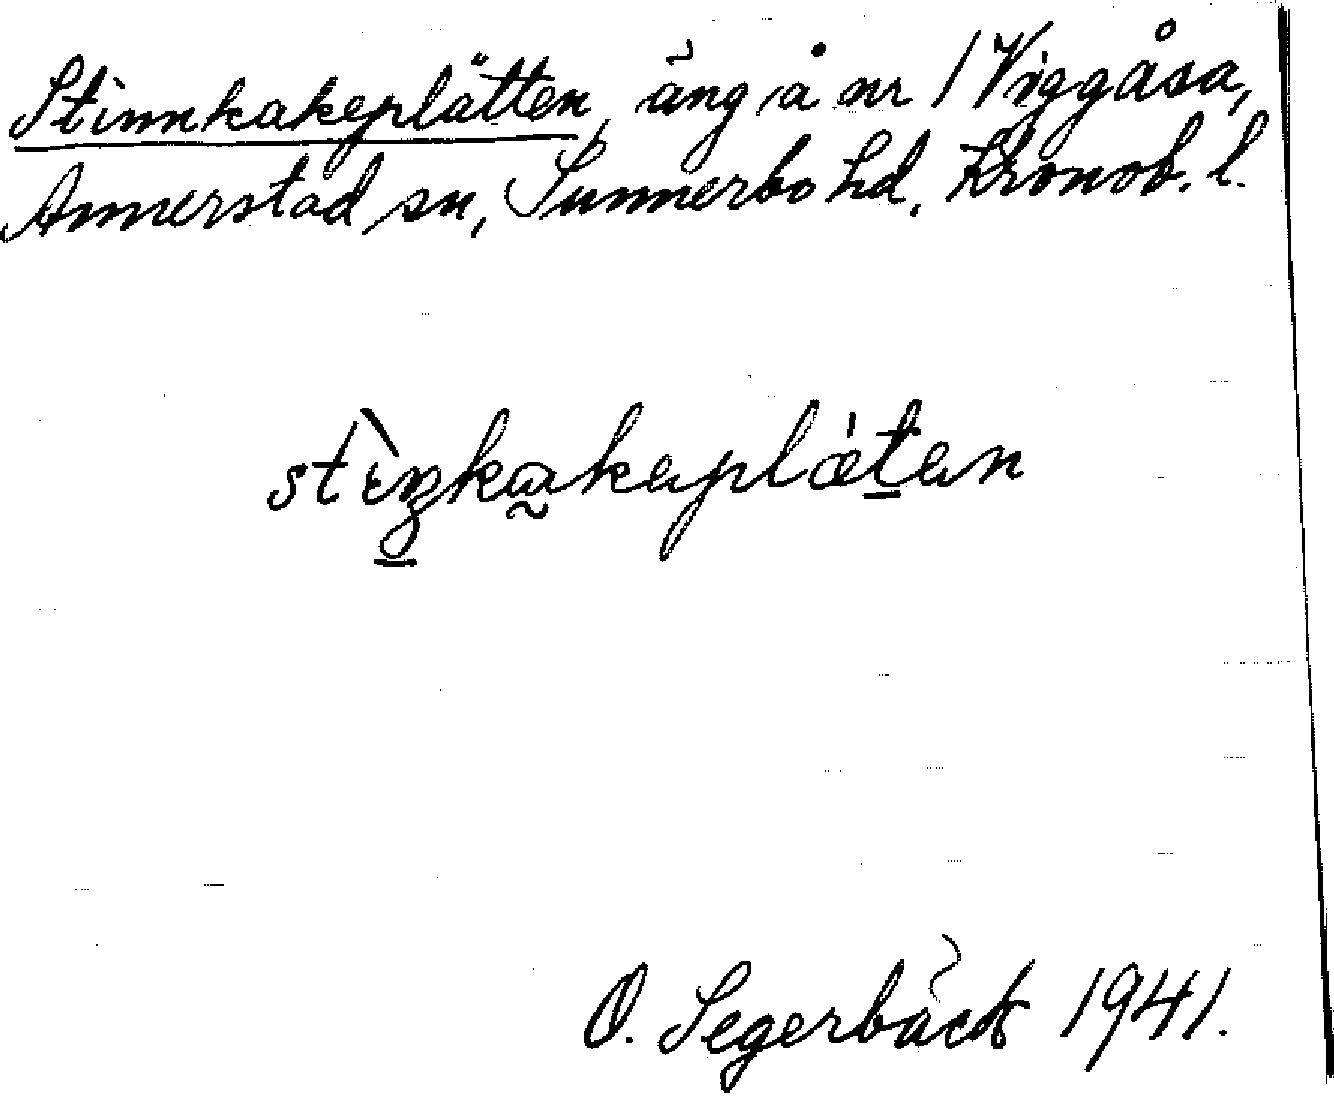 Stinnkakeplätten, äng å nr 1 Viggåsa,
Annerstad sn, Sunnerbo hd, Kronob. l.
stìnkakeplǽten
O. Segerbäck 1941.